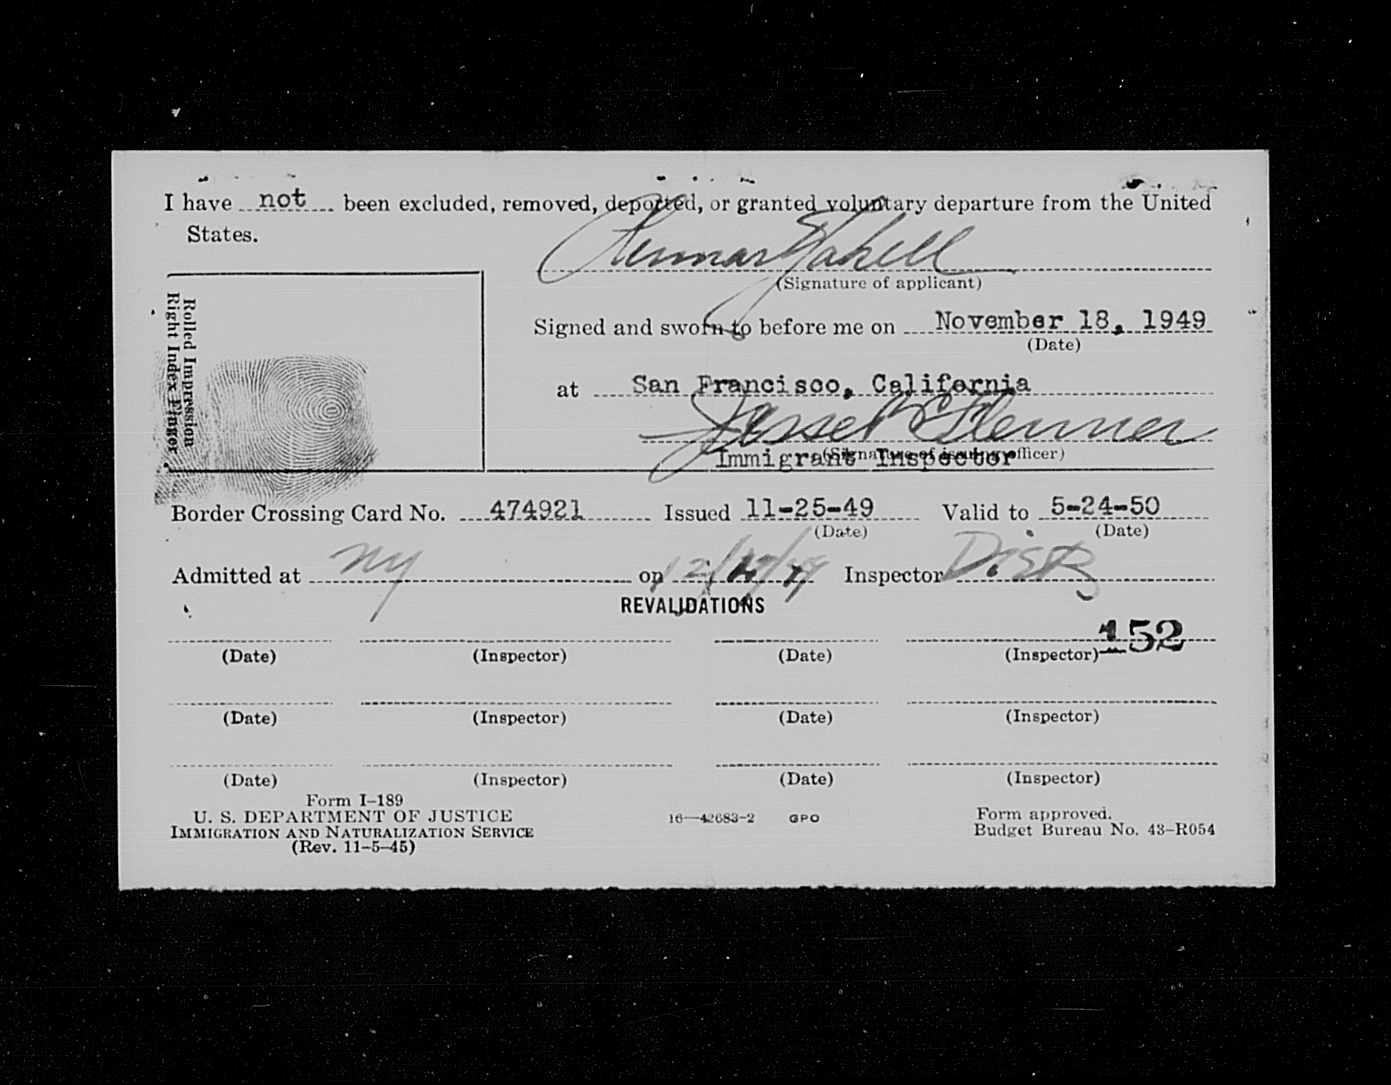 I have not been excluded, removed, deported, or granted voluntary departure from the United
States.
(Signature of applicant)
Rolled Impression
Right Index Finger
Signed and sworn to before me on November 18, 1949
(Date)
at San Francisco, California
(Signature of issuing officer)
Immigrant Inspector
Border Crossing Card No. 474921 Issued 11-25-49 Valid to 5-24-50
(Date) (Date)
Admitted at NY on Inspector
REVALIDATIONS
152
(Date) (Inspector) (Date) (Inspector)
(Date) (Inspector) (Date) (Inspector)
(Date) (Inspector) (Date) (Inspector)
Form I-189
U. S. DEPARTMENT OF JUSTICE
IMMIGRATION AND NATURALIZATION SERVICE
(Rev. 11-5-45)
16—42683-2 GPO
Form approved.
Budget Bureau No. 43-R054